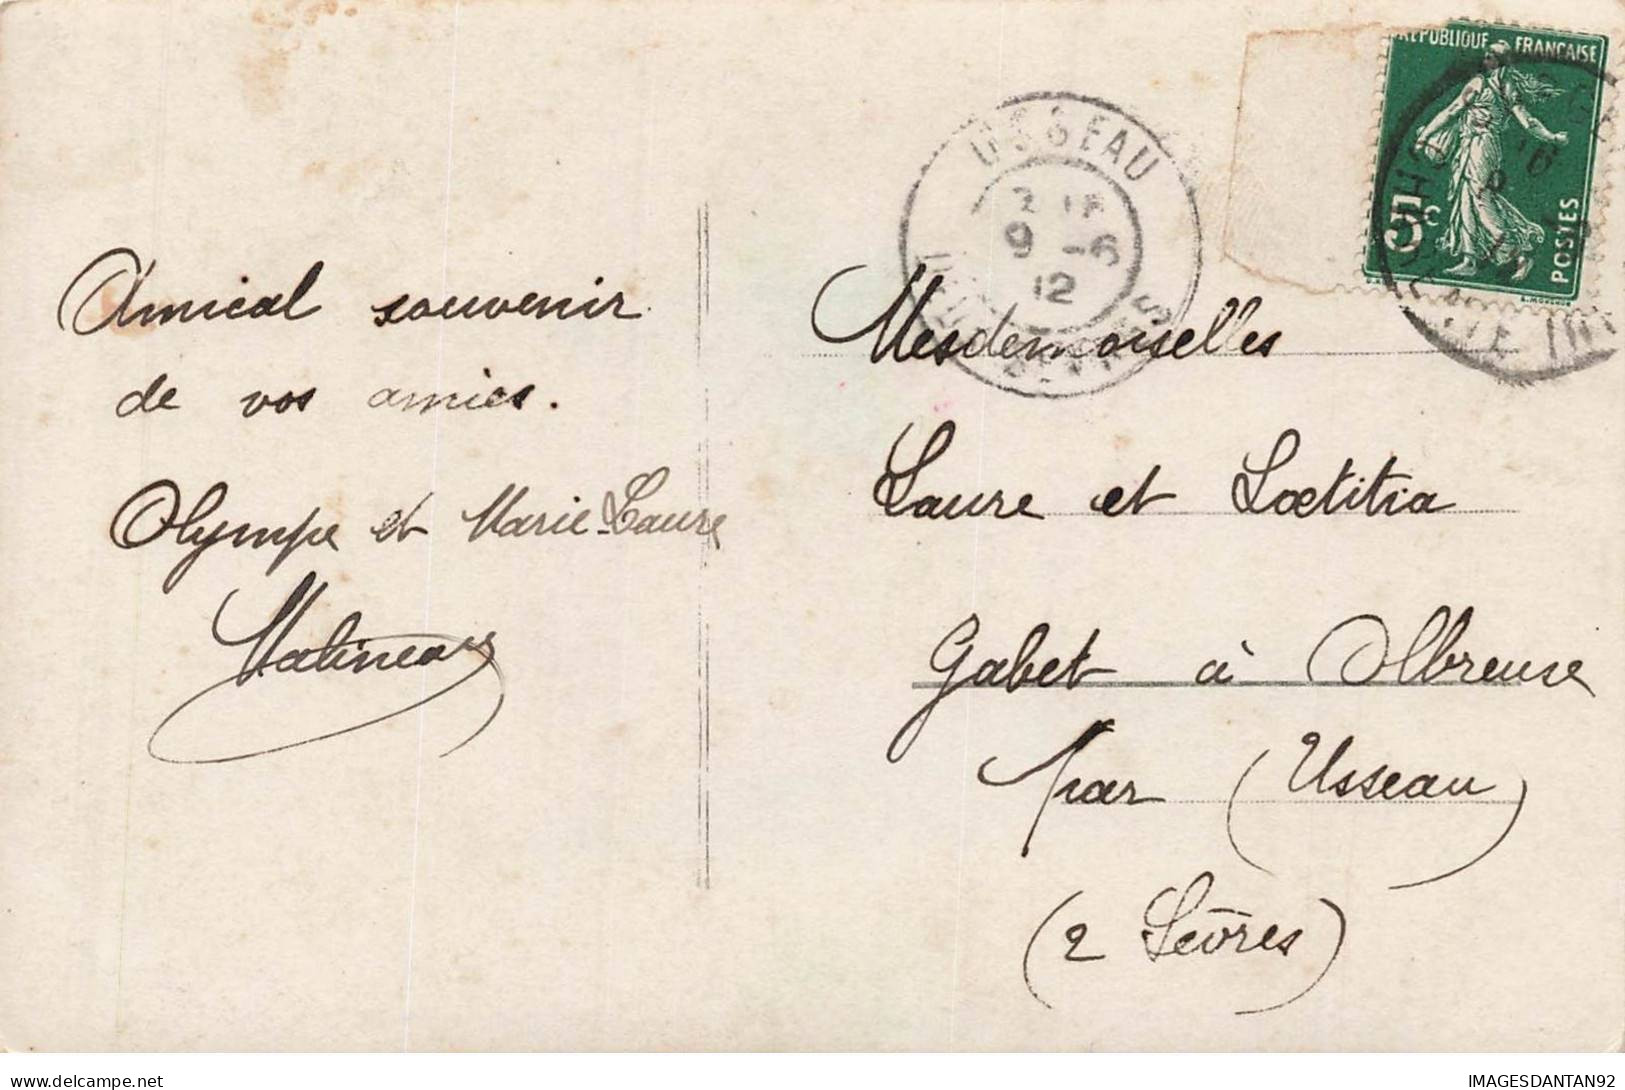 Amical souvenir
de vos amies.
Olympe et Marie-Laure
Matineau
USSEAU
9 -6
12
RÉPUBLIQUE FRANÇAISE
5c
POSTES
Mesdemoiselles
Laure et Lœtitia
Gabet à Olbreuse
par (Usseau)
(2 Sèvres)
IMAGESDANTAN92